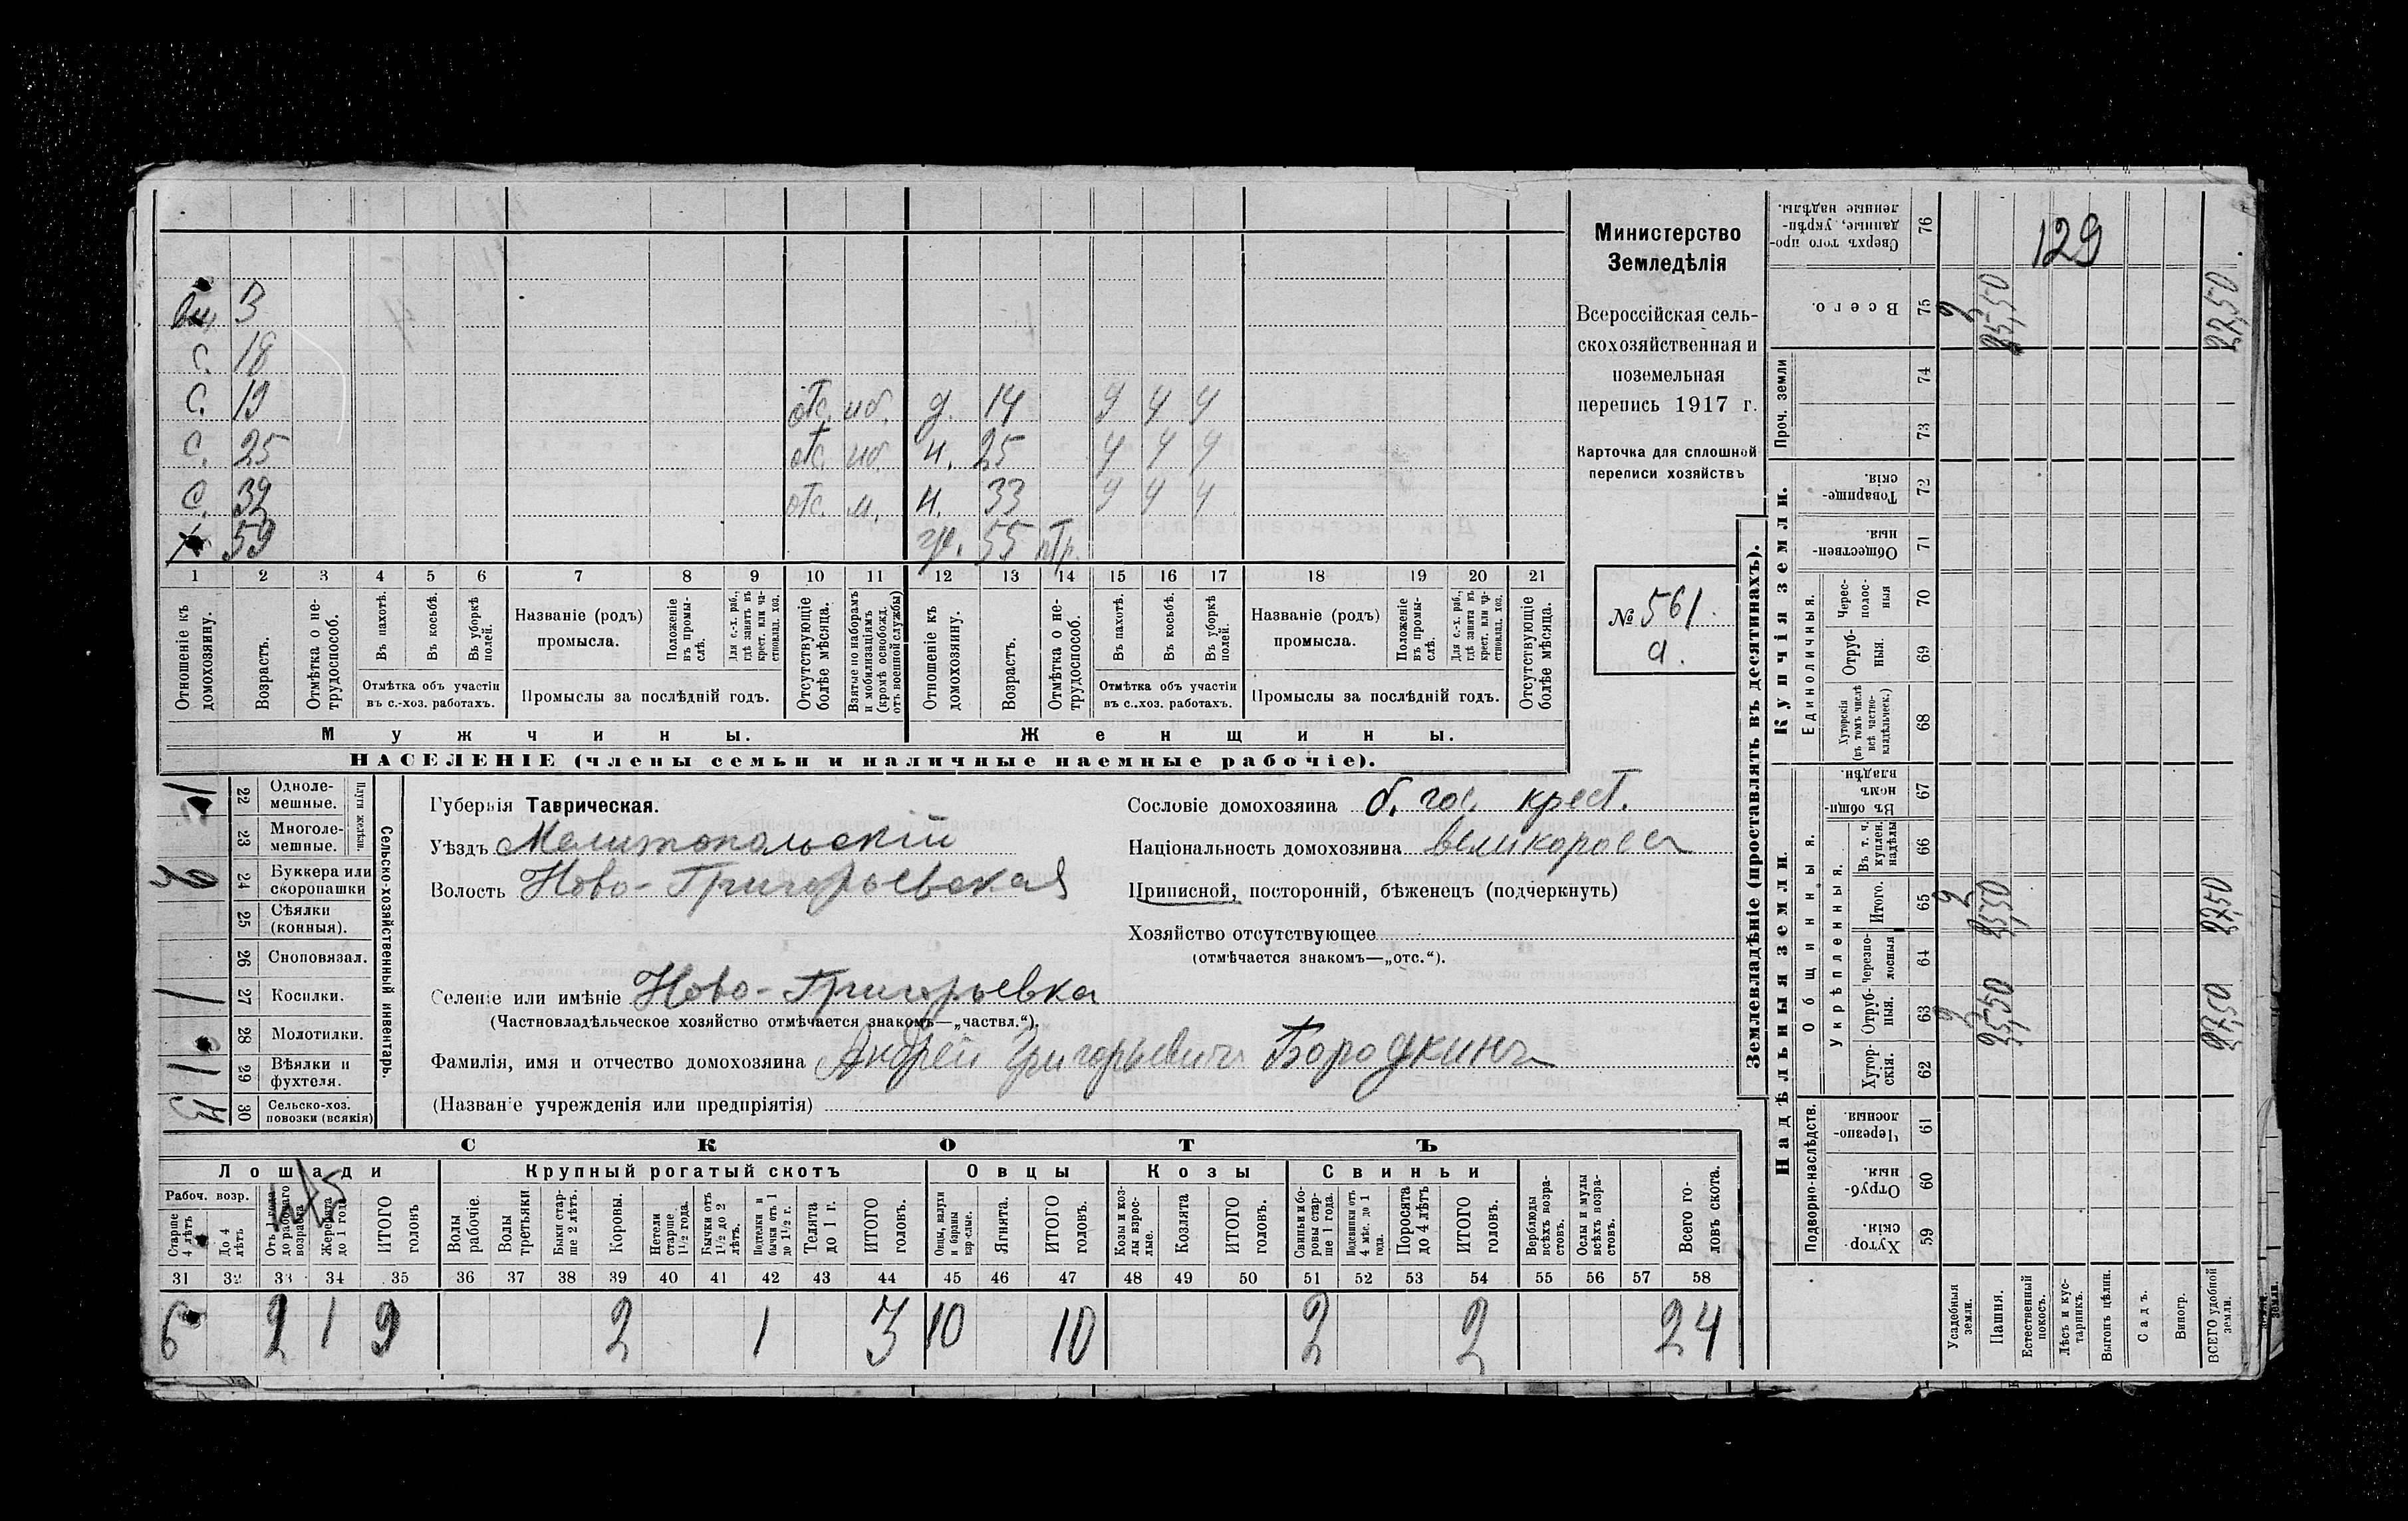 вн. 3
с. 18
с. 19 отс. иб. д. 14 9 4 4
с. 25 отс. иб. н. 25 4 4 4
с. 32 отс. м. н. 33 4 4 4
х 59 ж. 55 нтр.
1 2 3 4 5 6 7 8 9 10 11 12 13 14 15 16 17 18 19 20 21
Отношеніе къ домохозяину.
Возрастъ.
Отмѣтка о не-
трудоспособ.
Въ пахотѣ.
Въ косьбѣ.
Въ уборкѣ полей.
Отмѣтка объ участіи
въ с.-хоз. работахъ.
Названіе (родъ)
промысла.
Положеніе въ промы-
слѣ.
Для с.-х. раб., гдѣ занятъ въ крест. или ча-
стновлад. хоз.
Промыслы за послѣдній годъ.
Отсутствующіе болѣе мѣсяца.
Взятые по наборамъ и мобилизаціямъ (кромѣ освобожд. отъ военной службы)
Отношеніе къ домохозяину.
Возрастъ.
Отмѣтка о не-
трудоспособ.
Въ пахотѣ.
Въ косьбѣ.
Въ уборкѣ полей.
Отмѣтка объ участіи
въ с.-хоз. работахъ.
Названіе (родъ)
промысла.
Положеніе въ промы-
слѣ.
Для с.-х. раб., гдѣ занята въ крест. или ча-
стновлад. хоз.
Промыслы за послѣдній годъ.
Отсутствующіе болѣе мѣсяца.
Мужчины. Женщины.
НАСЕЛЕНІЕ (члены семьи и наличные наемные рабочіе).
Министерство
Земледѣлія
Всероссійская сель-
скохозяйственная и
поземельная
перепись 1917 г.
Карточка для сплошной
переписи хозяйствъ
№ 561.
а.
Сельско-хозяйственный инвентарь.
Плуги желѣзн.
1 22 Одноле-
мешные.
23 Многоле-
мешные.
24 Буккера или
скоропашки
25 Сѣялки
(конныя).
26 Сноповязал.
1 27 Косилки.
28 Молотилки.
1 29 Вѣялки и
фухтеля.
3 30 Сельско-хоз.
повозки (всякія)
Губернія Таврическая.
Уѣздъ Мелитопольскій
Волость Ново-Григорьевская
Селеніе или имѣніе Ново-Григорьевка
(Частновладѣльческое хозяйство отмѣчается знакомъ—„частвл.“).
Фамилія, имя и отчество домохозяина Андрей Григорьевичъ Бородкинъ
(Названіе учрежденія или предпріятія)
Сословіе домохозяина б. гос. крест.
Національность домохозяина великороссъ
Приписной, посторонній, бѣженецъ (подчеркнуть)
Хозяйство отсутствующее
(отмѣчается знакомъ—„отс.“).
СКОТЪ
Лошади Крупный рогатый скотъ Овцы Козы Свиньи
Рабоч. возр.
Старше 4 лѣтъ
До 4 лѣтъ
Отъ 1 года до рабочаго возраста
Жеребята до 1 года
ИТОГО головъ
Волы рабочіе.
Волы третьяки.
Быки стар-
ше 2 лѣтъ.
Коровы.
Нетели старше 1½ года.
Бычки отъ 1½ до 2 лѣтъ.
Подтелки и бычки отъ 1 до 1½ г.
Телята до 1 г.
ИТОГО головъ.
Овцы, валухи и бараны взрослые.
Ягнята.
ИТОГО головъ.
Козы и коз-
лы взрос-
лые.
Козлята
ИТОГО головъ.
Свиньи и бо-
ровы стар-
ше 1 года.
Подсвинки отъ 4 мѣс. до 1 года.
Поросята до 4 лѣтъ
ИТОГО головъ.
Верблюды всѣхъ возра-
стовъ.
Ослы и мулы всѣхъ возра-
стовъ.
Всего го-
ловъ скота.
31 32 33 34 35 36 37 38 39 40 41 42 43 44 45 46 47 48 49 50 51 52 53 54 55 56 57 58
6 2 1 9 2 1 3 10 10 2 2 24
Землевладѣніе (проставлять въ десятинахъ).
Купчія земли.
Надѣльныя земли.
Сверхъ того про-
данные, укрѣп-
ленные надѣлы. 76
129
Всего. 75 2 25,50 27,50
Проч. земли 74 73
Товарище-
скія. 72
Обществен-
ныя. 71
Единоличныя.
Черес-
полос-
ныя 70
Отруб-
ныя. 69
Хуторскія (въ томъ числѣ всѣ частно-
владѣльческ.) 68
Общинныя.
Въ общи-
номъ
владѣн. 67
Укрѣпленныя.
Въ т. ч. куплен. надѣлы 66
Итого. 65 2 25,50 27,50
Черезпо-
лосныя 64
Отруб-
ныя. 63 2 25,50 27,50
Хутор-
скія. 62
Подворно-наслѣдств.
Черезпо-
лосныя. 61
Отруб-
ныя. 60
Хутор-
скія. 59
Усадебныя земли.
Пашня.
Естественный покосъ.
Лѣсъ и кус-
тарникъ.
Выгонъ цѣлин.
Садъ.
Виногр.
ВСЕГО удобной земли.